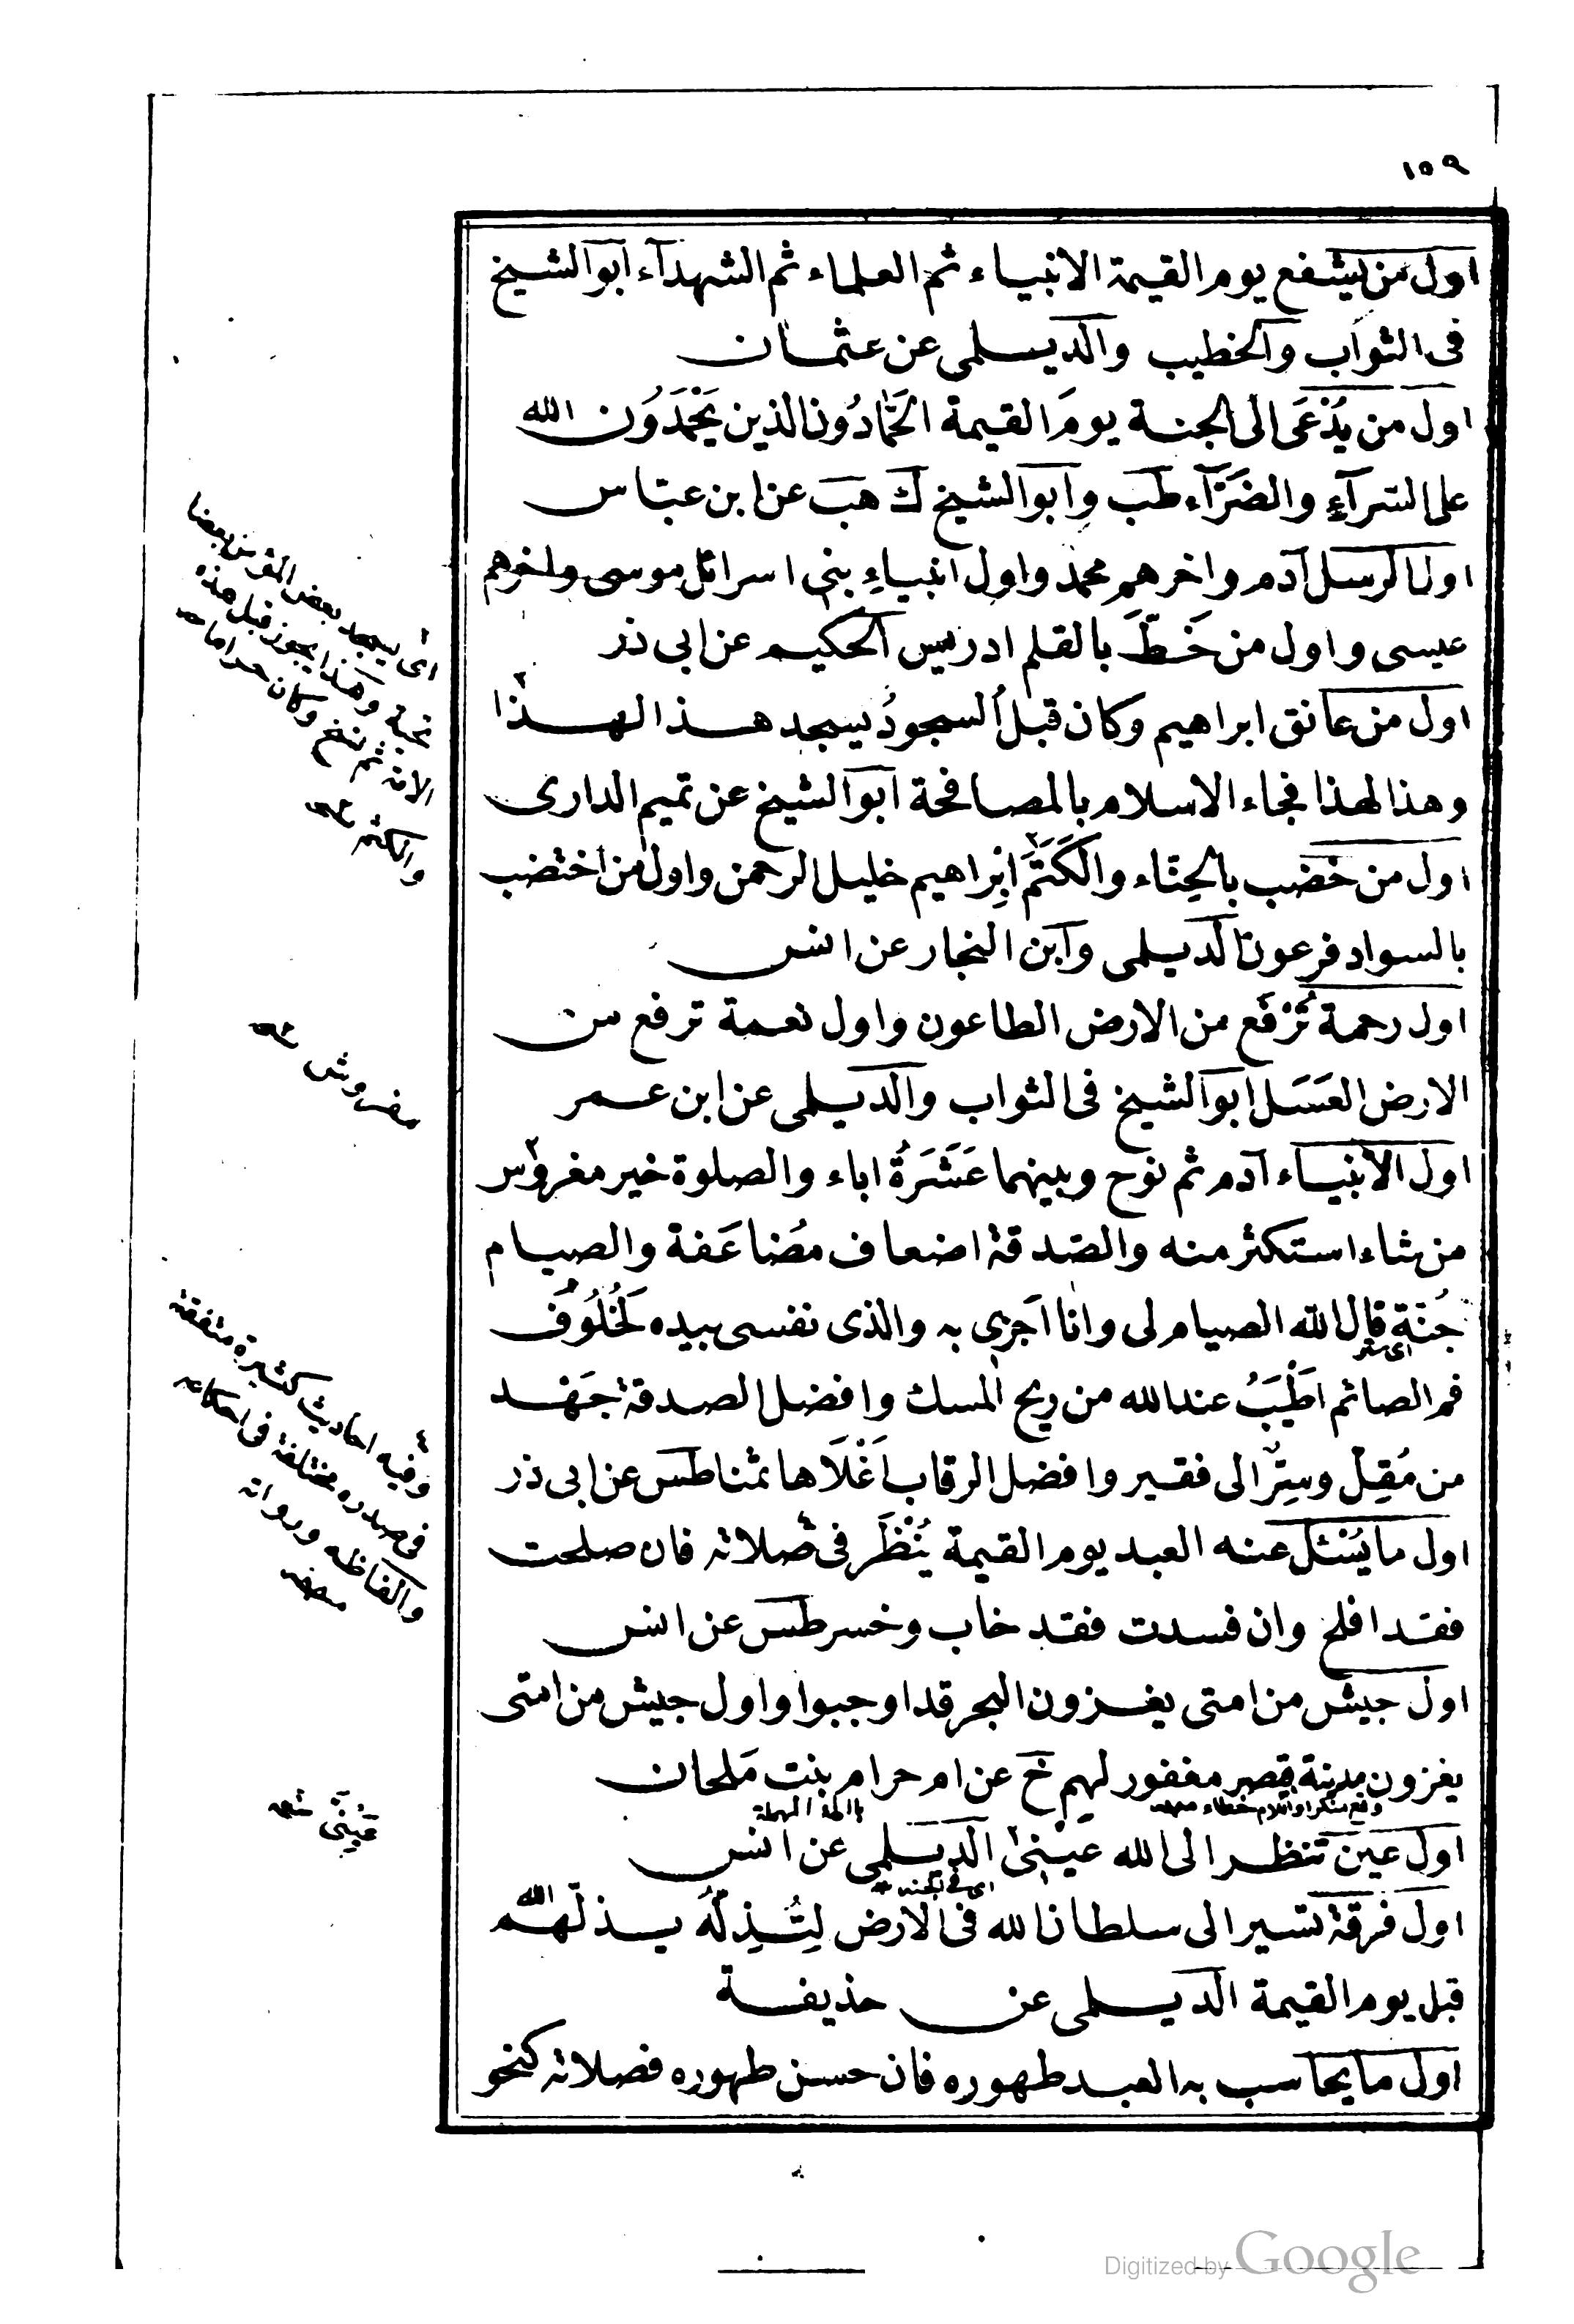 ١٥٩
اول من يشفع يوم القيمة الانبياء ثم العلماء ثم الشهدآء ابوالشيخ
فى الثواب والخطيب والديلمى عن عثمان
اول من يُدْعَى الى الجنة يومَ القيمة الحَمَّادُون الذين يَحْمَدُون الله
على السرآءِ والضَرَّآء طب وابوالشيخ ك هب عن ابن عباس
اول الرسل آدم واخرهم محمد واول انبياءِ بنى اسرائل موسى واخرهم
عيسى واول من خَطَّ بالقلم ادريس الحكيم عن ابى ذر
اول من عانق ابراهيم وكان قبل السجودُ يسجد هذا لهذا
وهذا لهذا فجاء الاسلام بالمصافحة ابوالشيخ عن تميم الدارى
اول من خضب بالحِنّاء والكَتَمَ ابراهيم خليل الرحمن واول من اختضب
بالسواد فرعون الديلمى وابن النجار عن انس
اول رحمة تُرْفَع من الارض الطاعون واول نعمة ترفع من
الارض العَسَل ابوالشيخ فى الثواب والديلمى عن ابن عمر
اول الانبياء آدم ثم نوح وبينهما عَشَرَةُ اباء والصلوة خير مغروس
من شاء استكثر منه والصّدقة اضعاف مُضاعَفة والصيام
جُنّة قال الله الصيام لى وانا اجزى به والذى نفسى بيده لَخُلُوفُ
اى ستر
فم الصائم اطْيَبُ عند الله من ريح المسك وافضل الصدقة جَهْد
من مُقِلّ وسِتْر الى فقير وافضل الرقاب اَغْلَاها ثمنا طس عن ابى ذر
اول ما يُسْئل عنه العبد يوم القيمة يُنْظَر فى صلاته فان صلحت
فقد افلح وان فسدت فقد خاب وخسر طس عن انس
اول جيش من امتى يغزون البحر قد اوجبوا واول جيش من امتى
يغزون مدينة قيصر مغفور لهم خ عن ام حرام بنت مَلحان
اول عين تنظر الى الله عَيْنِىْ الديلمى عن انس
اول فرقة تسير الى سلطان الله فى الارض لِتُذِلَّهُ يذلّهم الله
قبل يوم القيمة الديلمى عن حذيفة
اول ما يحاسب به العبد طهوره فان حسن طهوره فصلاته كنحو
اى يسجد بعض بعضا
تحية وهكذا يجوز قبل هذه
الامة ثم نسخ وكان حراما
والكتم
مفروش
وفيه احاديث كثيرة متفقة
فى صدره مختلفة فى احكامه
والفاظه ورواته
عَيْنَىَّ
Digitized by Google